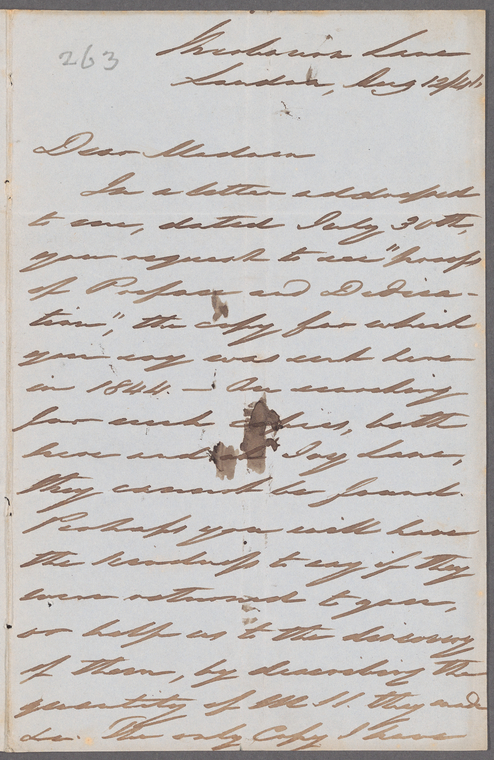 263
Shoe Lane
London, Aug 12/46
Dear Madam
In a letter addressed
to me, dated July 30th,
you request to see "proofs
of Preface and Dedica-
tion", the copy for which
you say was sent here
in 1844. — On searching
for such copies, both
here and at Ivy Lane,
they cannot be found.
Perhaps you will have
the kindness to say if they
were returned to you,
or help us to the discovery
of them, by describing the
quantity of M S. they made
&c. The only Copy I have